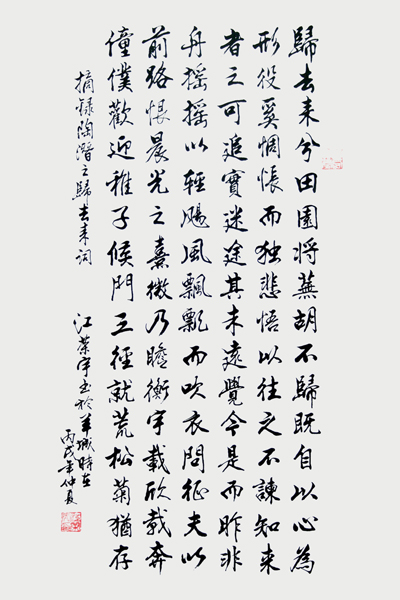 歸去来兮田園将蕪胡不歸既自以心為
形役奚惆悵而独悲悟以往之不諫知来
者之可追實迷途其未遠覺今是而昨非
舟摇摇以輕颺風飄飄而吹衣問征夫以
前路恨晨光之熹微乃瞻衡宇載欣載奔
僮僕歡迎稚子候門三徑就荒松菊猶存
摘録陶潛之歸去来词
江荣宇书於羊城時在
丙戌年仲夏